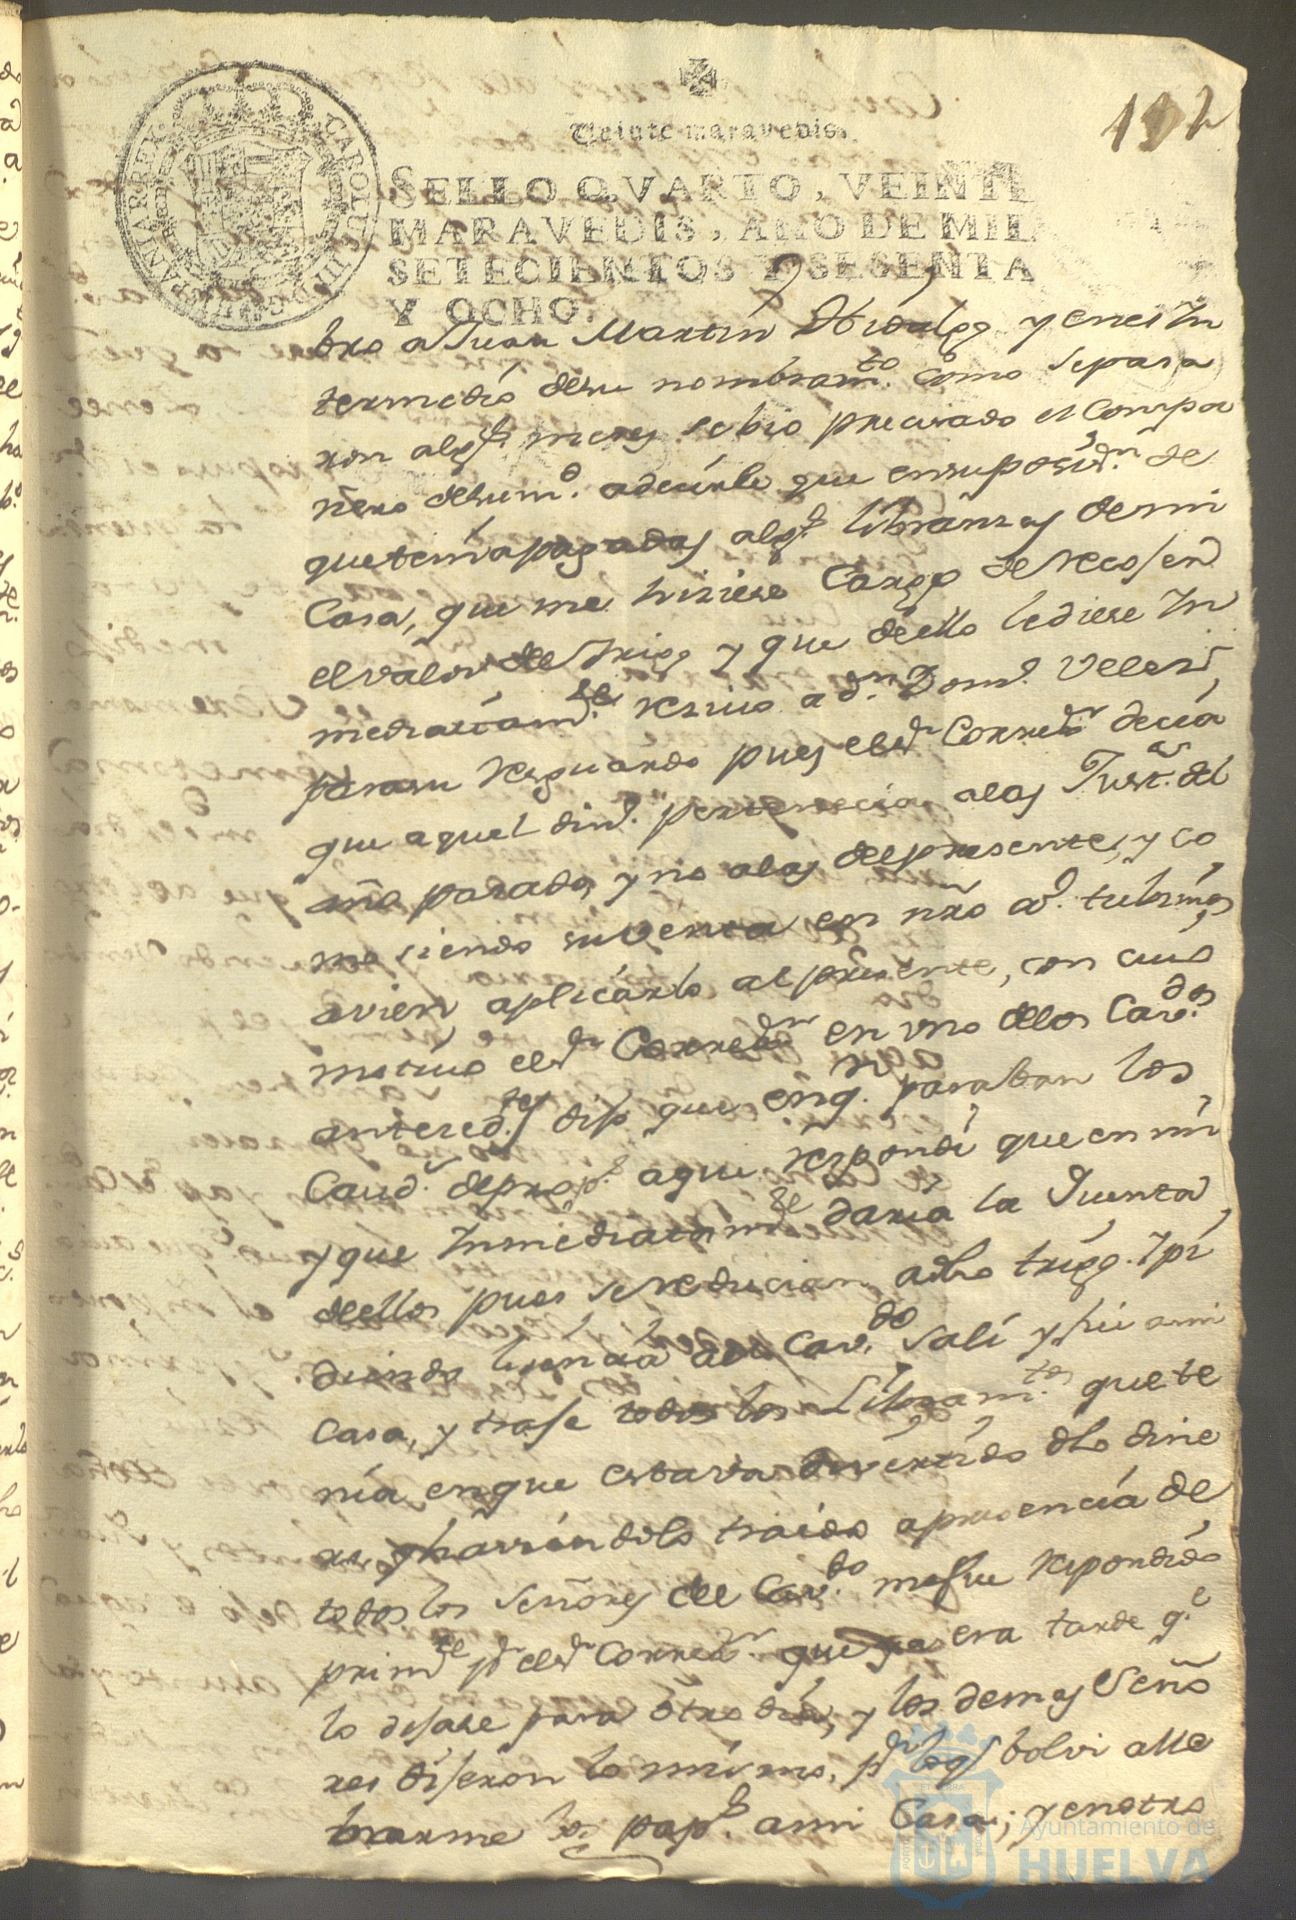 192
Veinte maravedis.
SELLO QVARTO, VEINTE
MARAVEDIS, AÑO DE MIL
SETECIENTOS Y SESENTA
Y OCHO.
CAROLUS III D G HISPANIAR REX
bro a Juan Martin Hidalgo y en el In
termedio desu nombramto. como se pasa
ron algs. meses se bio precisado el Compa
ñero desumd. adecirle que ensuposizn. de
quetenia pagadas algs. libranzas demi
Casa, que me hiziese Cargo de recoser
el valor del trigo y que de ello le diese In
mediatamte. reciuo a Dn. Domo. Velez,
parasu resguardo pues el Sr. Corredr. decia
que aquel dino. pertenecia alas Justas. del
año pasado, y no alas del presente, y co
mo siendo suventa en
avien aplicarlo al presente, con cuio
motiuo el Sr. Corredr. en vno delos Cavdos.
antecedtes. dijo que en qn. paraban los
Cauds. de props. aque respondi que en mi
y que Inmediatamte. daria la Quenta
deellos pues se reducian adho trigo. Ypi
diendo lisencia al Cavdo. sali y fui ami
Casa, y traje todos los Libramtos. quete
nia, enque estava divertido dho dine
ro, y haviendolo traido apresencia de
todos los señores del Cavdo. mefue respondido
primte. pr. el Sr. Corredr. que ya era tarde qe.
lo dejase para otro dia, y los demas Seño
res dijeron lo mismo, pr. lo qe. bolvi alle
barme los paps. ami Casa; y enotro
Ayuntamiento de
HUELVA